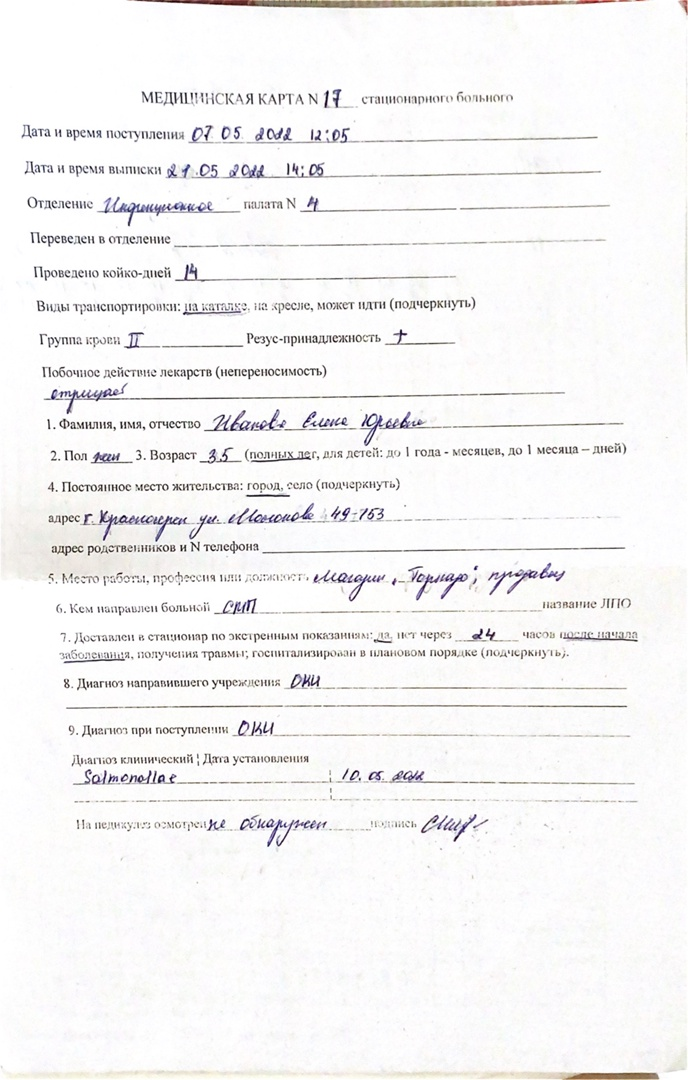 МЕДИЦИНСКАЯ КАРТА N 17 стационарного больного
Дата и время поступления 07 05 2022 12:05
Дата и время выписки 21.05 2022 14:05
Отделение Инфекционное палата N 4
Переведен в отделение
Проведено койко-дней 14
Виды транспортировки: на каталке, на кресле, может идти (подчеркнуть)
Группа крови II Резус-принадлежность +
Побочное действие лекарств (непереносимость)
отрицает
1. Фамилия, имя, отчество Иванова Елена Юрьевна
2. Пол жен 3. Возраст 35 (полных лет, для детей: до 1 года - месяцев, до 1 месяца – дней)
4. Постоянное место жительства: город, село (подчеркнуть)
адрес г. Красногорск ул. 49-153
адрес родственников и N телефона
5. Место работы, профессия или должность Магазин „Торнадо", продавец
6. Кем направлен больной СМП название ЛПО
7. Доставлен в стационар по экстренным показаниям: да, нет через 24 часов после начала
заболевания, получения травмы; госпитализирован в плановом порядке (подчеркнуть).
8. Диагноз направившего учреждения ОКИ
9. Диагноз при поступлении ОКИ
Диагноз клинический ¦ Дата установления
Salmonollae ¦ 10. 05. 2022
На педикулез осмотрен не обнаружен подпись